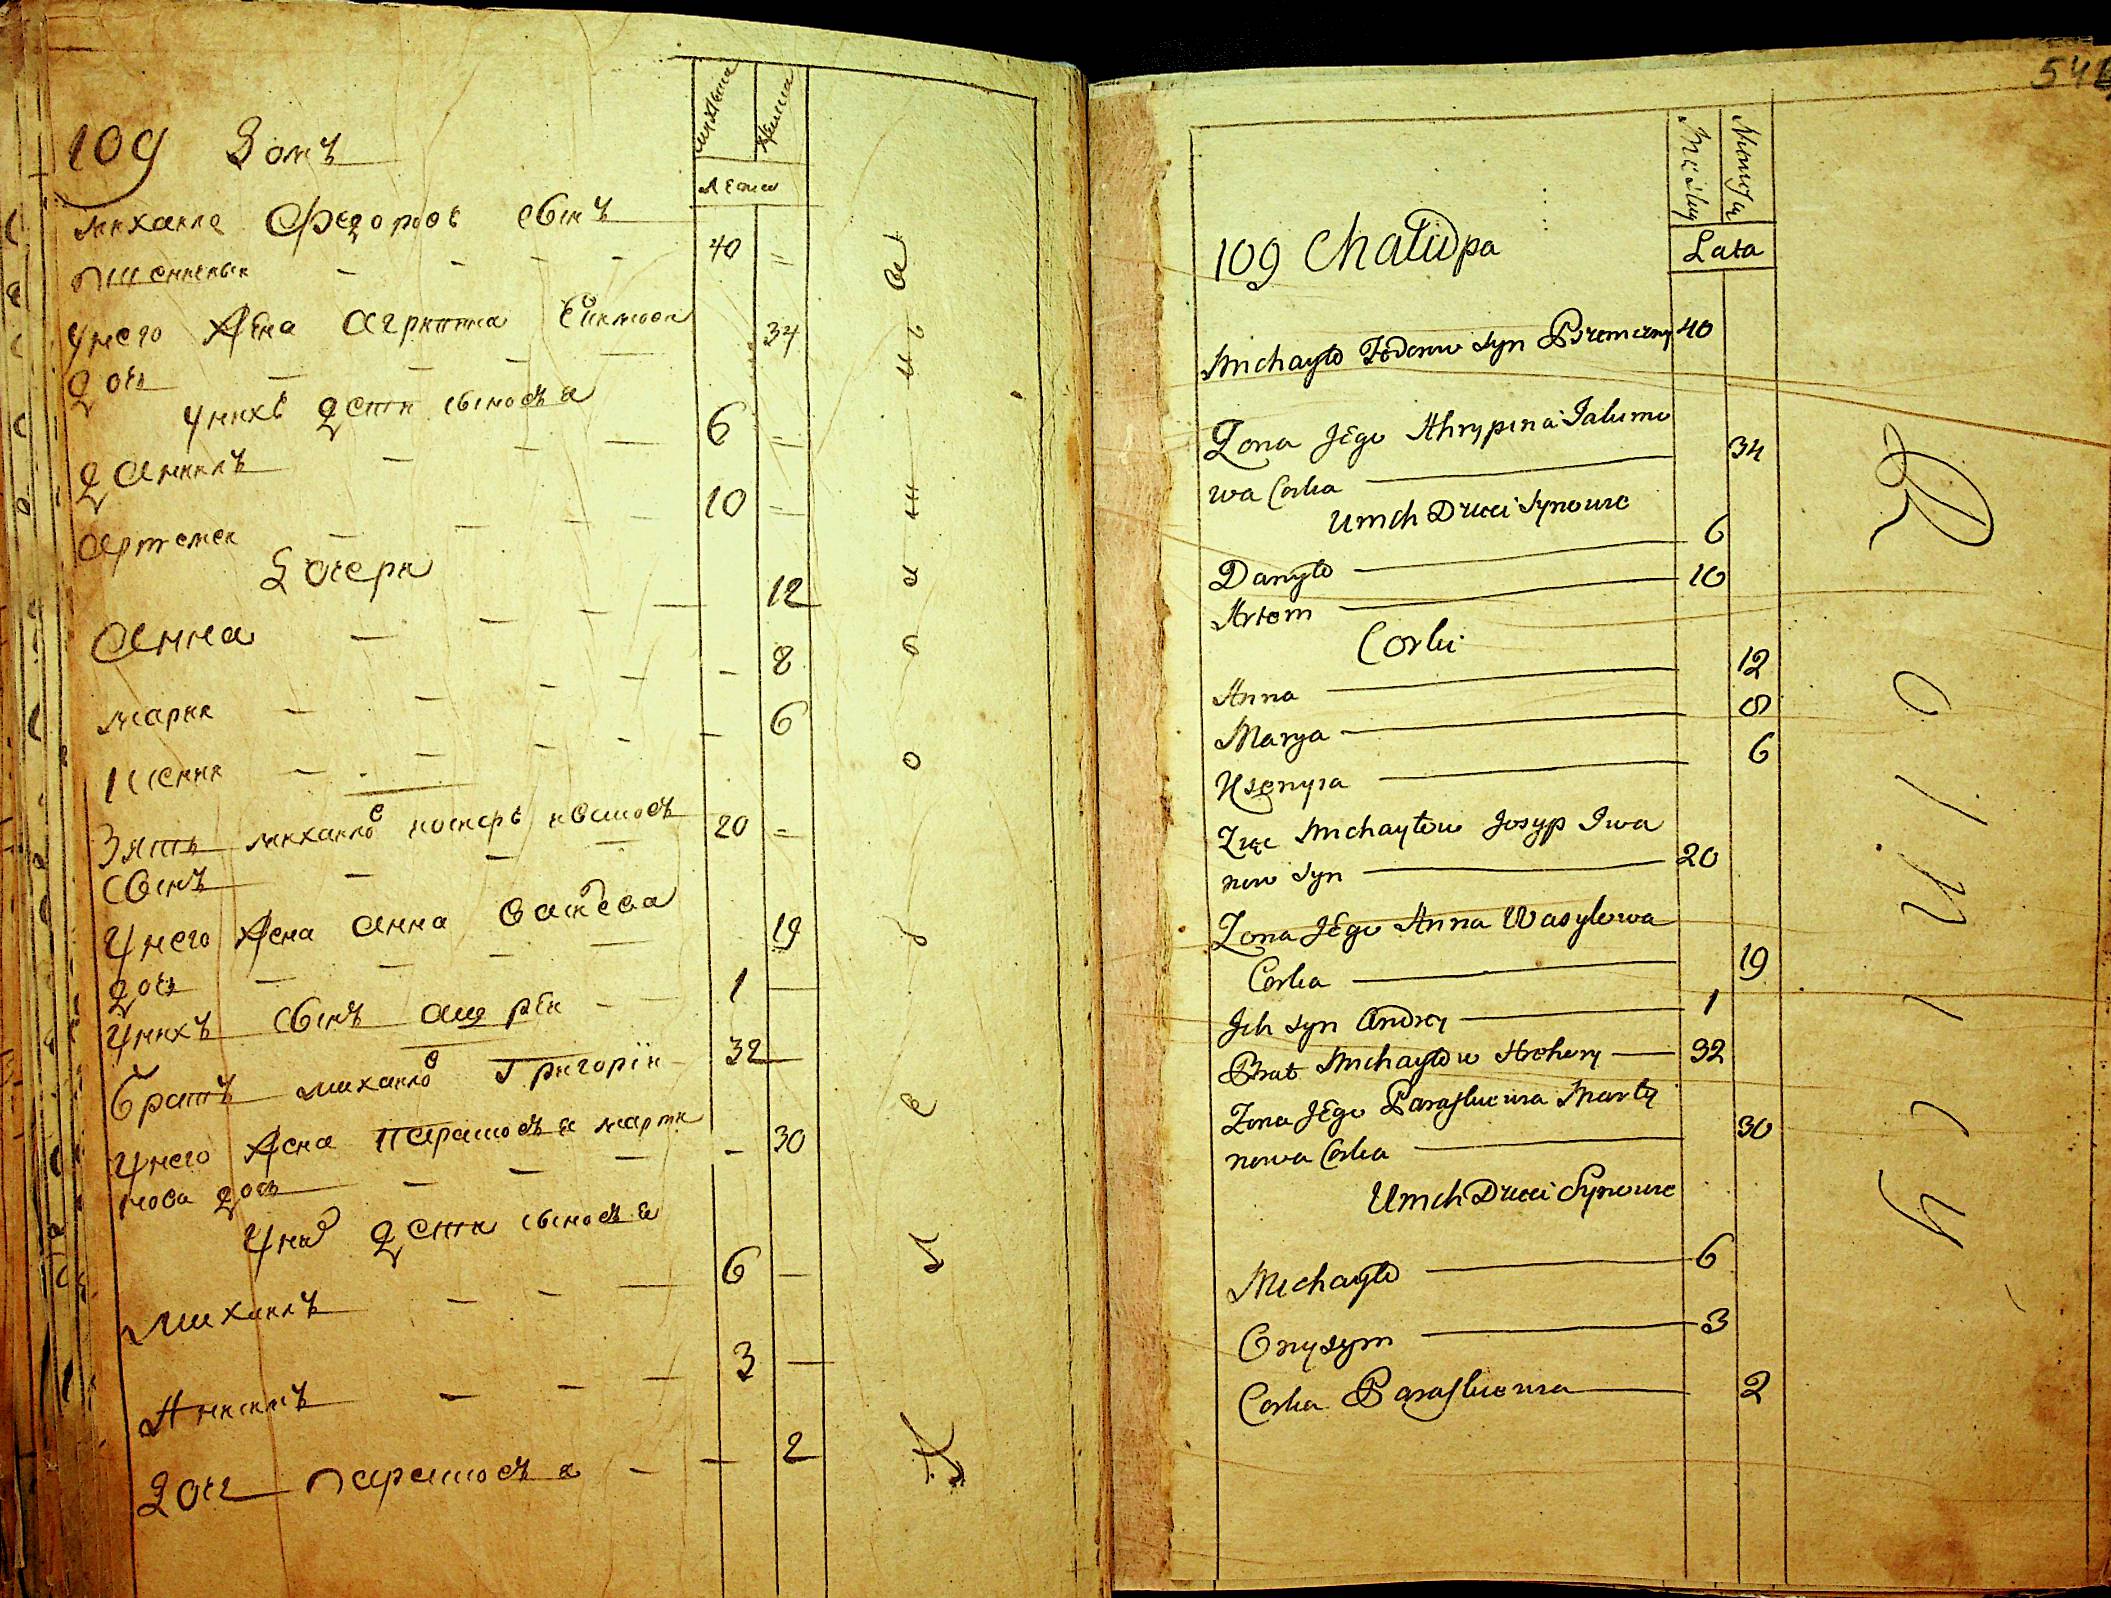 109 Домъ
мужеска
женска
лета
михаило Федоровъ сынъ 40 =
пшеничныи
у него жена Агрипина Екимова 34
дочь
у нихъ дети сыновъя
Данилъ 6 =
Артемеи 10 =
Дочери
Анна 12
Мария 8
Ксения 6
Зять михаилов иосифъ ивановъ 20 =
сынъ
у него жена Анна Василева 19
дочь
у нихъ сынъ Андреи 1
братъ михаилов Григорїи 32
у него жена парасковъя марти 30
нова дочь
у них дети сыновъя
Михаилъ 6
Анисимъ 3
дочь парасковъя 2
546
109 Chałupa
Męzka
Niewiescia
Lata
Michayło Fedorow Syn Pszeniczny 40
Zona Jego Ahrypina Jakimo 34
wa Corka
U nich Dzieci Synowie
Danyło 6
Artem 10
Corki
Anna 12
Marya 8
Xsenyia 6
Zięc Michayłow Josyp Iwa
now Syn 20
Zona Jego Anna Wasylowa
Corka 19
Jch syn Andrey 1
Brat Michayłow Hrehory 32
Zona Jego Paraskiewia Marty
nowa Corka 30
U nich Dzieci Synowie
Michayło 6
Onysym 3
Corka Paraskiewia 2
Rolnicy